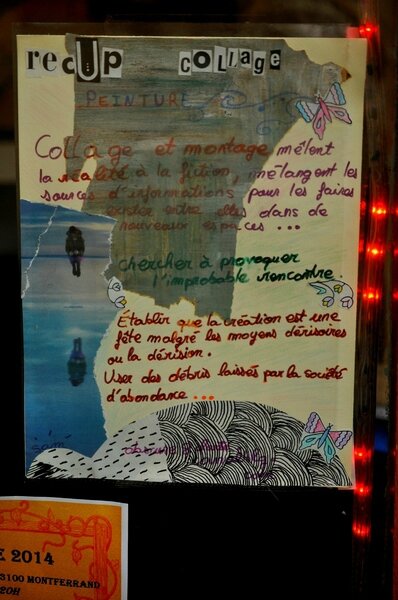 recup collage
PEINTURE
Collage et montage mêlent
la réalité à la fiction, mélangent les
sources d'informations pour les faires
exister entre elles dans de
nouveaux espaces ...
chercher à provoquer
l'improbable rencontre.
Établir que la création est une
fête malgré les moyens dérisoires
ou la dérision.
User des débris laissés par la société
d'abondance ...
E 2014
3100 MONTFERRAND
20H